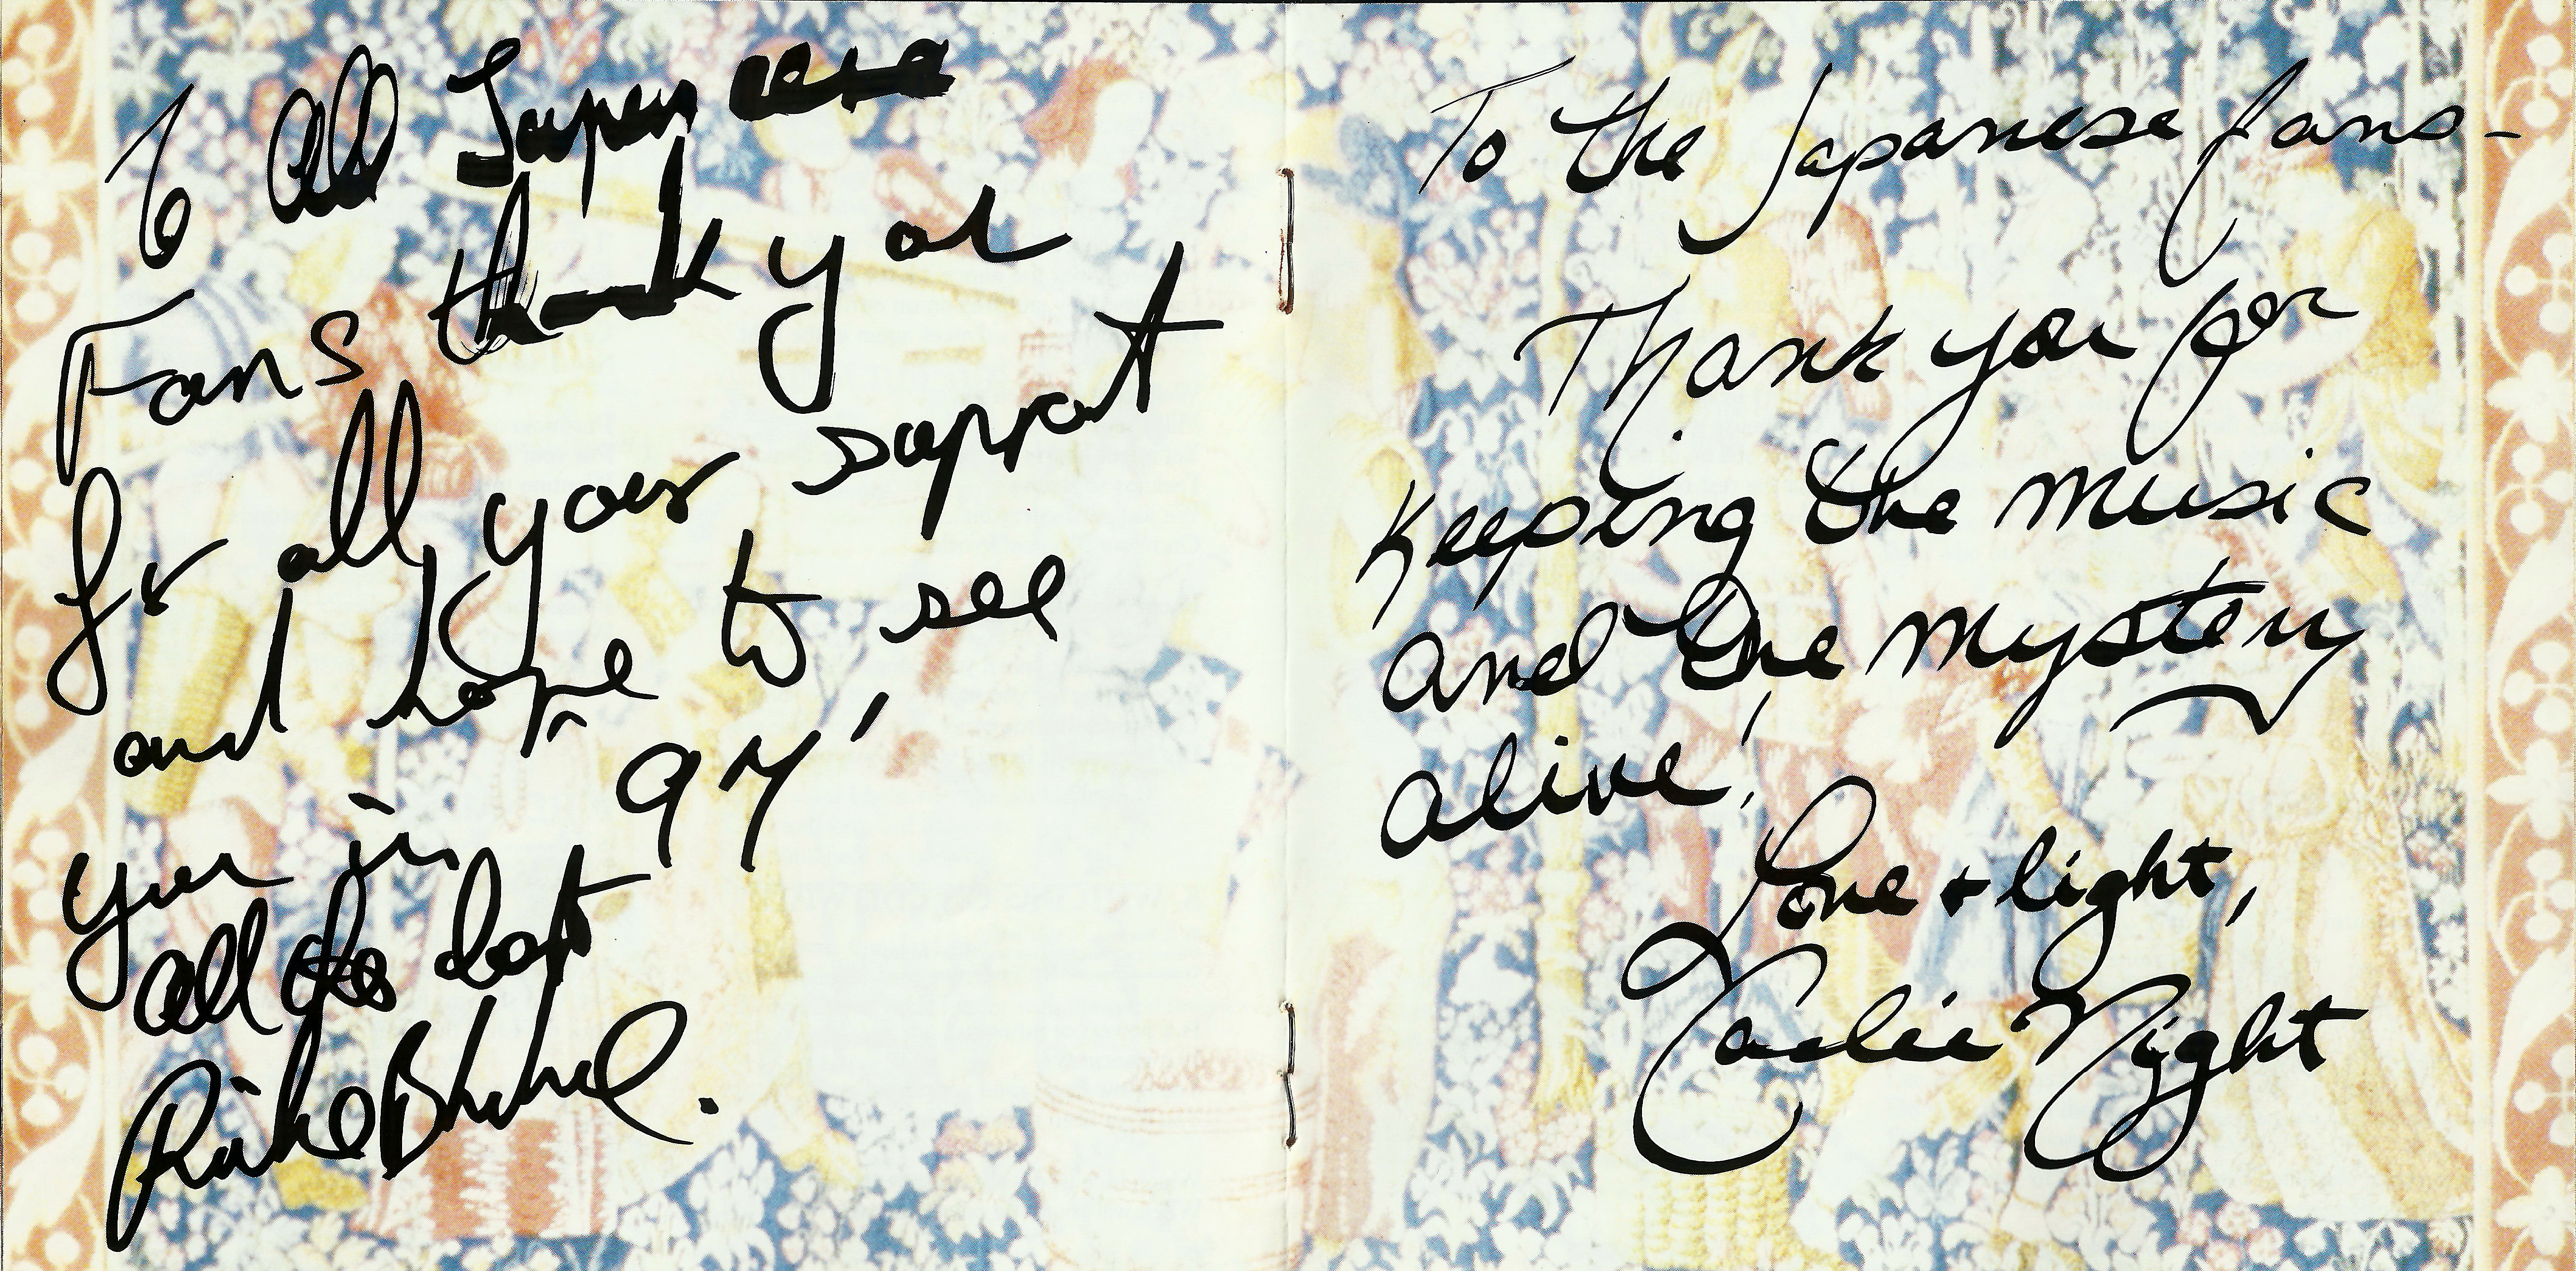 To all Japanese
Fans thank you
for all your support
and hope to see
you in 97'
all the best
Ritchie Blackmore.
To the Japanese fans-
Thank you for
keeping the music
and the mystery
alive!
Love + light,
Candice Night